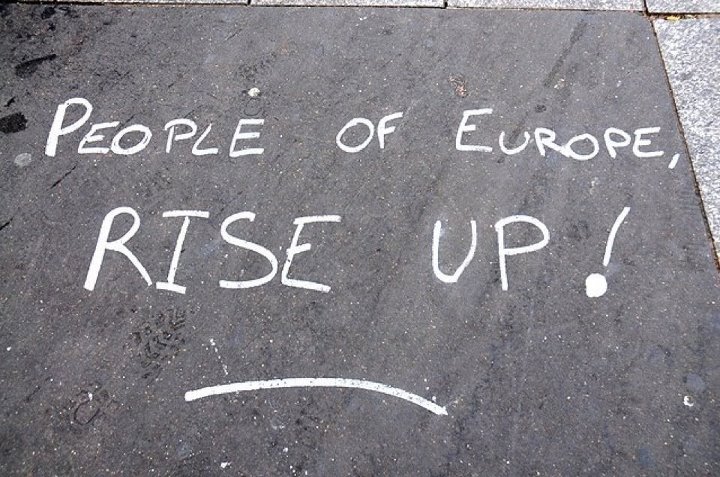 PEOPLE OF EUROPE,
RISE UP!